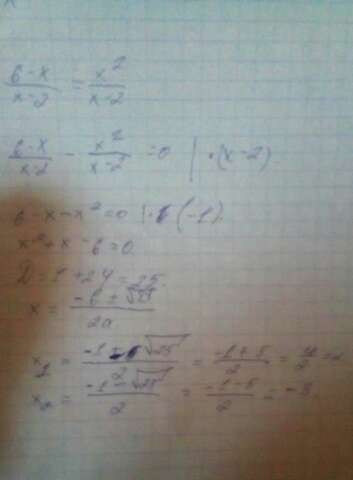 6-x/x-2 = x²/x-2
6-x/x-2 - x²/x-2 = 0 | ·(x-2)
6-x-x²=0 | ·(-1)
x²+x-6=0
D=1+24=25
x = -b±√25/2a
x₁ = -1+√25/2 = -1+5/2 = 4/2 = 2
x₂ = -1-√25/2 = -1-5/2 = -3